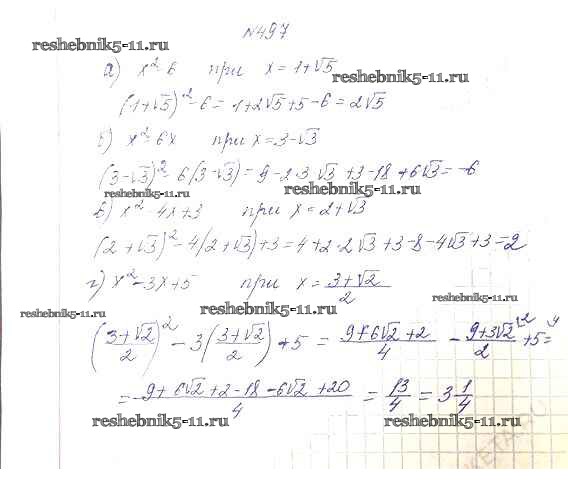 №497
reshebnik5-11.ru
reshebnik5-11.ru
а) x²-6 при x = 1+√5
(1+√5)²-6 = 1+2√5+5-6 = 2√5
б) x²-6x при x = 3-√3
(3-√3)²-6(3-√3) = 9-2·3√3+3-18+6√3 = -6
reshebnik5-11.ru
reshebnik5-11.ru
в) x²-4x+3 при x = 2+√3
(2+√3)²-4(2+√3)+3 = 4+2·2√3+3-8-4√3+3 = 2
г) x²-3x+5 при x = (3+√2)/2
reshebnik5-11.ru
reshebnik5-11.ru
reshebnik5-11.ru
((3+√2)/2)² - 3((3+√2)/2)+5 = (9+6√2+2)/4 - (9+3√2)/2 \2 +5 \4 =
= (9+6√2+2-18-6√2+20)/4 = 13/4 = 3 1/4
reshebnik5-11.ru
reshebnik5-11.ru